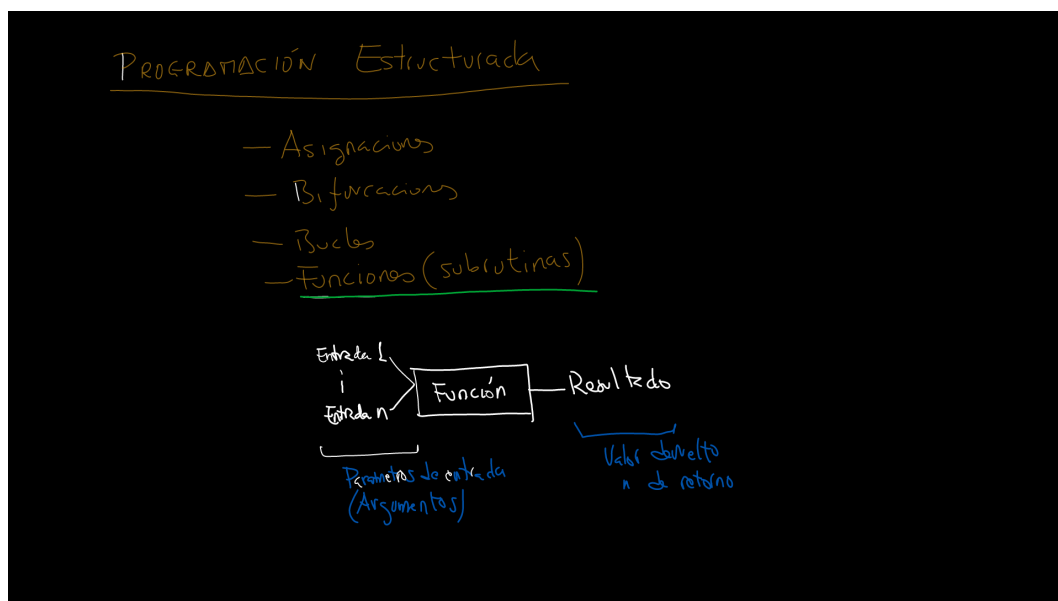 PROGRAMACIÓN Estructurada
— Asignaciones
— Bifurcaciones
— Bucles
— Funciones (subrutinas)
Entrada 1
Entrada n
Función
Resultado
Parametros de entrada
(Argumentos)
Valor devuelto
" de retorno